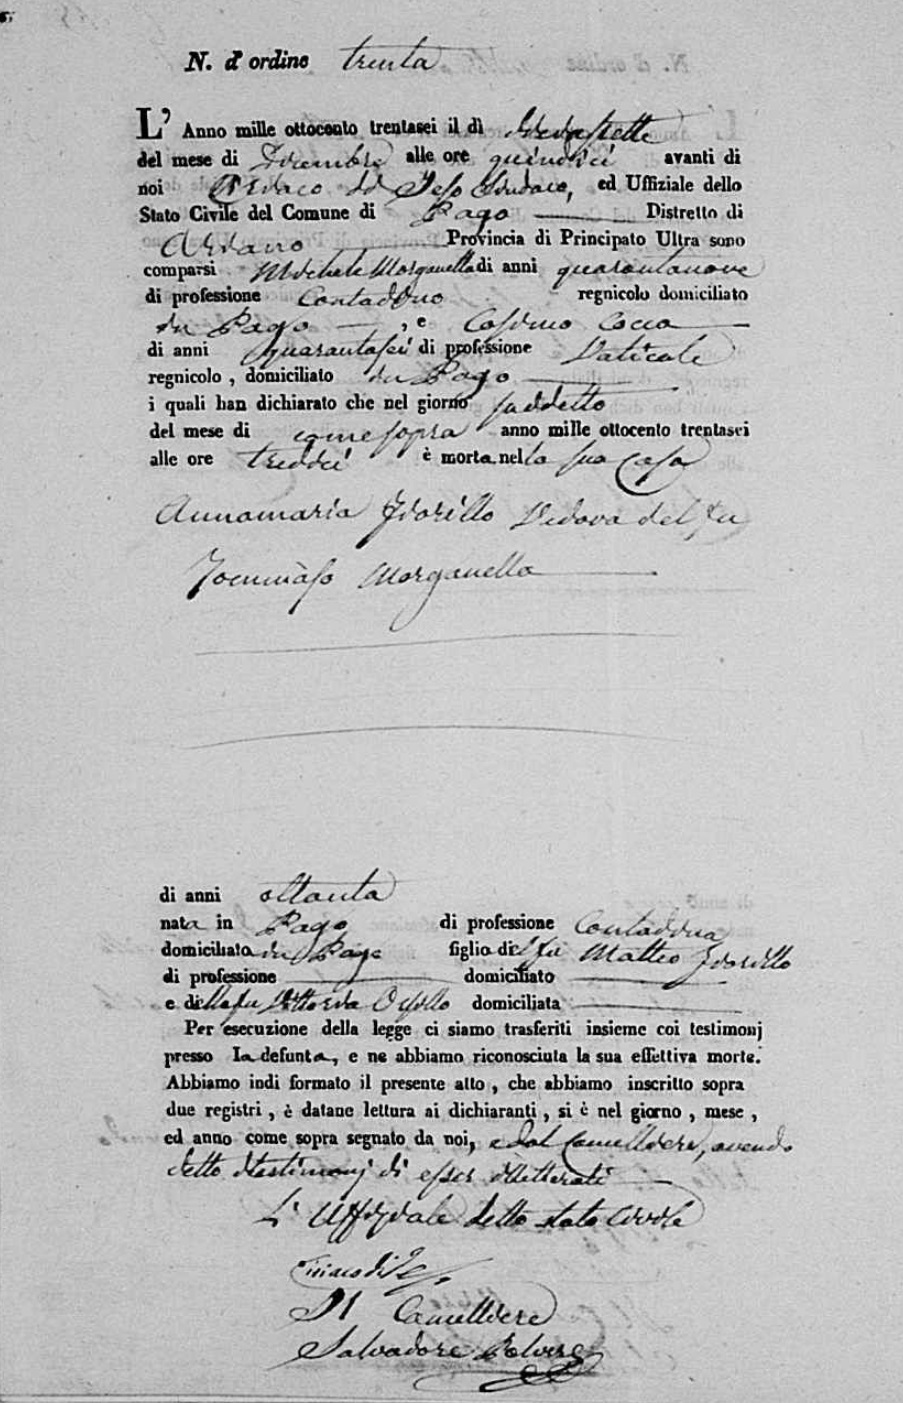 N. d'ordine trenta
L'Anno mille ottocento trentasei il dì diecisette
del mese di Dicembre alle ore quindici avanti di
noi Ciriaco di Jeso Sindaco, ed Uffiziale dello
Stato Civile del Comune di Pago Distretto di
Ariano Provincia di Principato Ultra sono
comparsi Michele Morganella di anni quarantanove
di professione Contadino regnicolo domiciliato
in Pago, e Cosimo Cocca
di anni quarantasei di professione Vaticale
regnicolo, domiciliato in Pago
i quali han dichiarato che nel giorno suddetto
del mese di come sopra anno mille ottocento trentasei
alle ore tredici è morta nella sua casa
Annamaria Iorillo Vedova del fu
Tommaso Morganella
di anni ottanta
nata in Pago di professione Contadina
domiciliata in Pago figlia del fu Matteo Iorillo
di professione domiciliato
e della fu Vittoria domiciliata
Per esecuzione della legge ci siamo trasferiti insieme coi testimonj
presso la defunta, e ne abbiamo riconosciuta la sua effettiva morte.
Abbiamo indi formato il presente atto, che abbiamo inscritto sopra
due registri, è datane lettura ai dichiaranti, si è nel giorno, mese,
ed anno come sopra segnato da noi, e dal Cancelliere, avendo
detto i testimonj di esser illetterati
L'Uffiziale dello stato Civile
Ciriaco di Jeso
Il Cancelliere
Salvadore Polvere